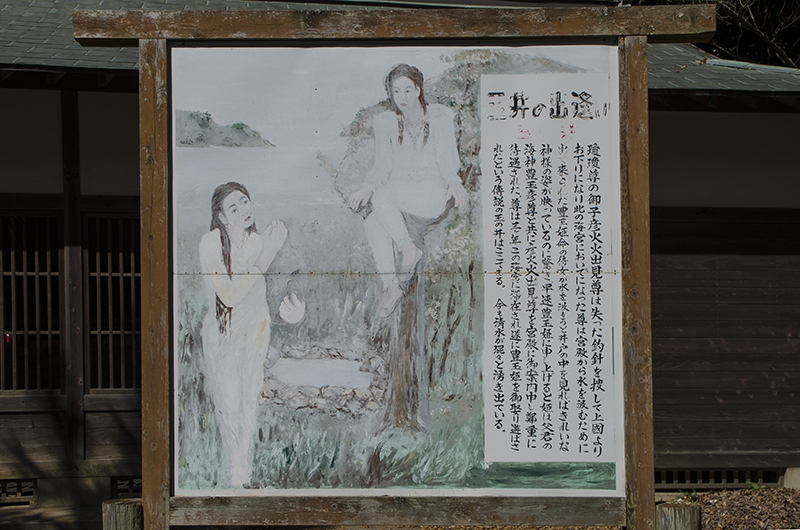 玉井の出逢い
瓊瓊尊の御子彦火火出見尊は失った釣針を捜して上国より
お下りになり此の海宮においでになった尊は宮殿から水を汲むために
出て来られた豊玉姫命の侍女が水を汲まうと井戸の中を見ればきれいな
神様の姿が映っているのに驚き早速豊玉姫に申し上げると姫は父君の
海神豊玉彦尊と共に彦火火出見尊を宮殿に御案内申し鄭重に
待遇された 尊は三年この海宮に滞在され遂に豊玉姫を御娶り遊ばさ
れたという傳説の玉の井はここである。 今も清水が滾々と湧き出ている。